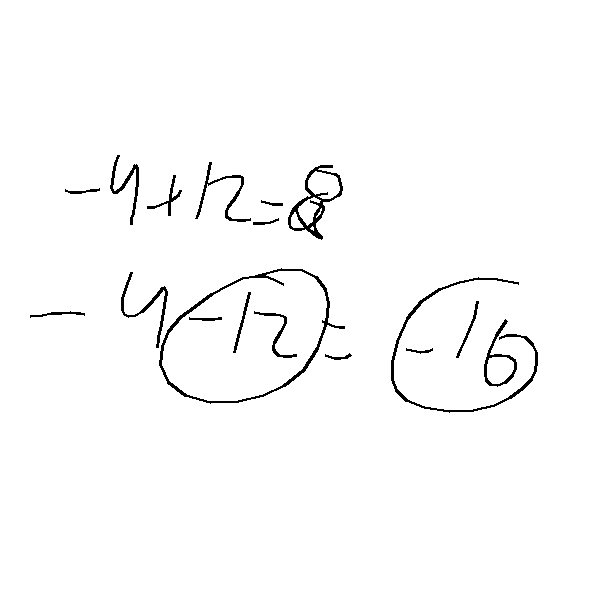 -4+12=8
-4-12=-16